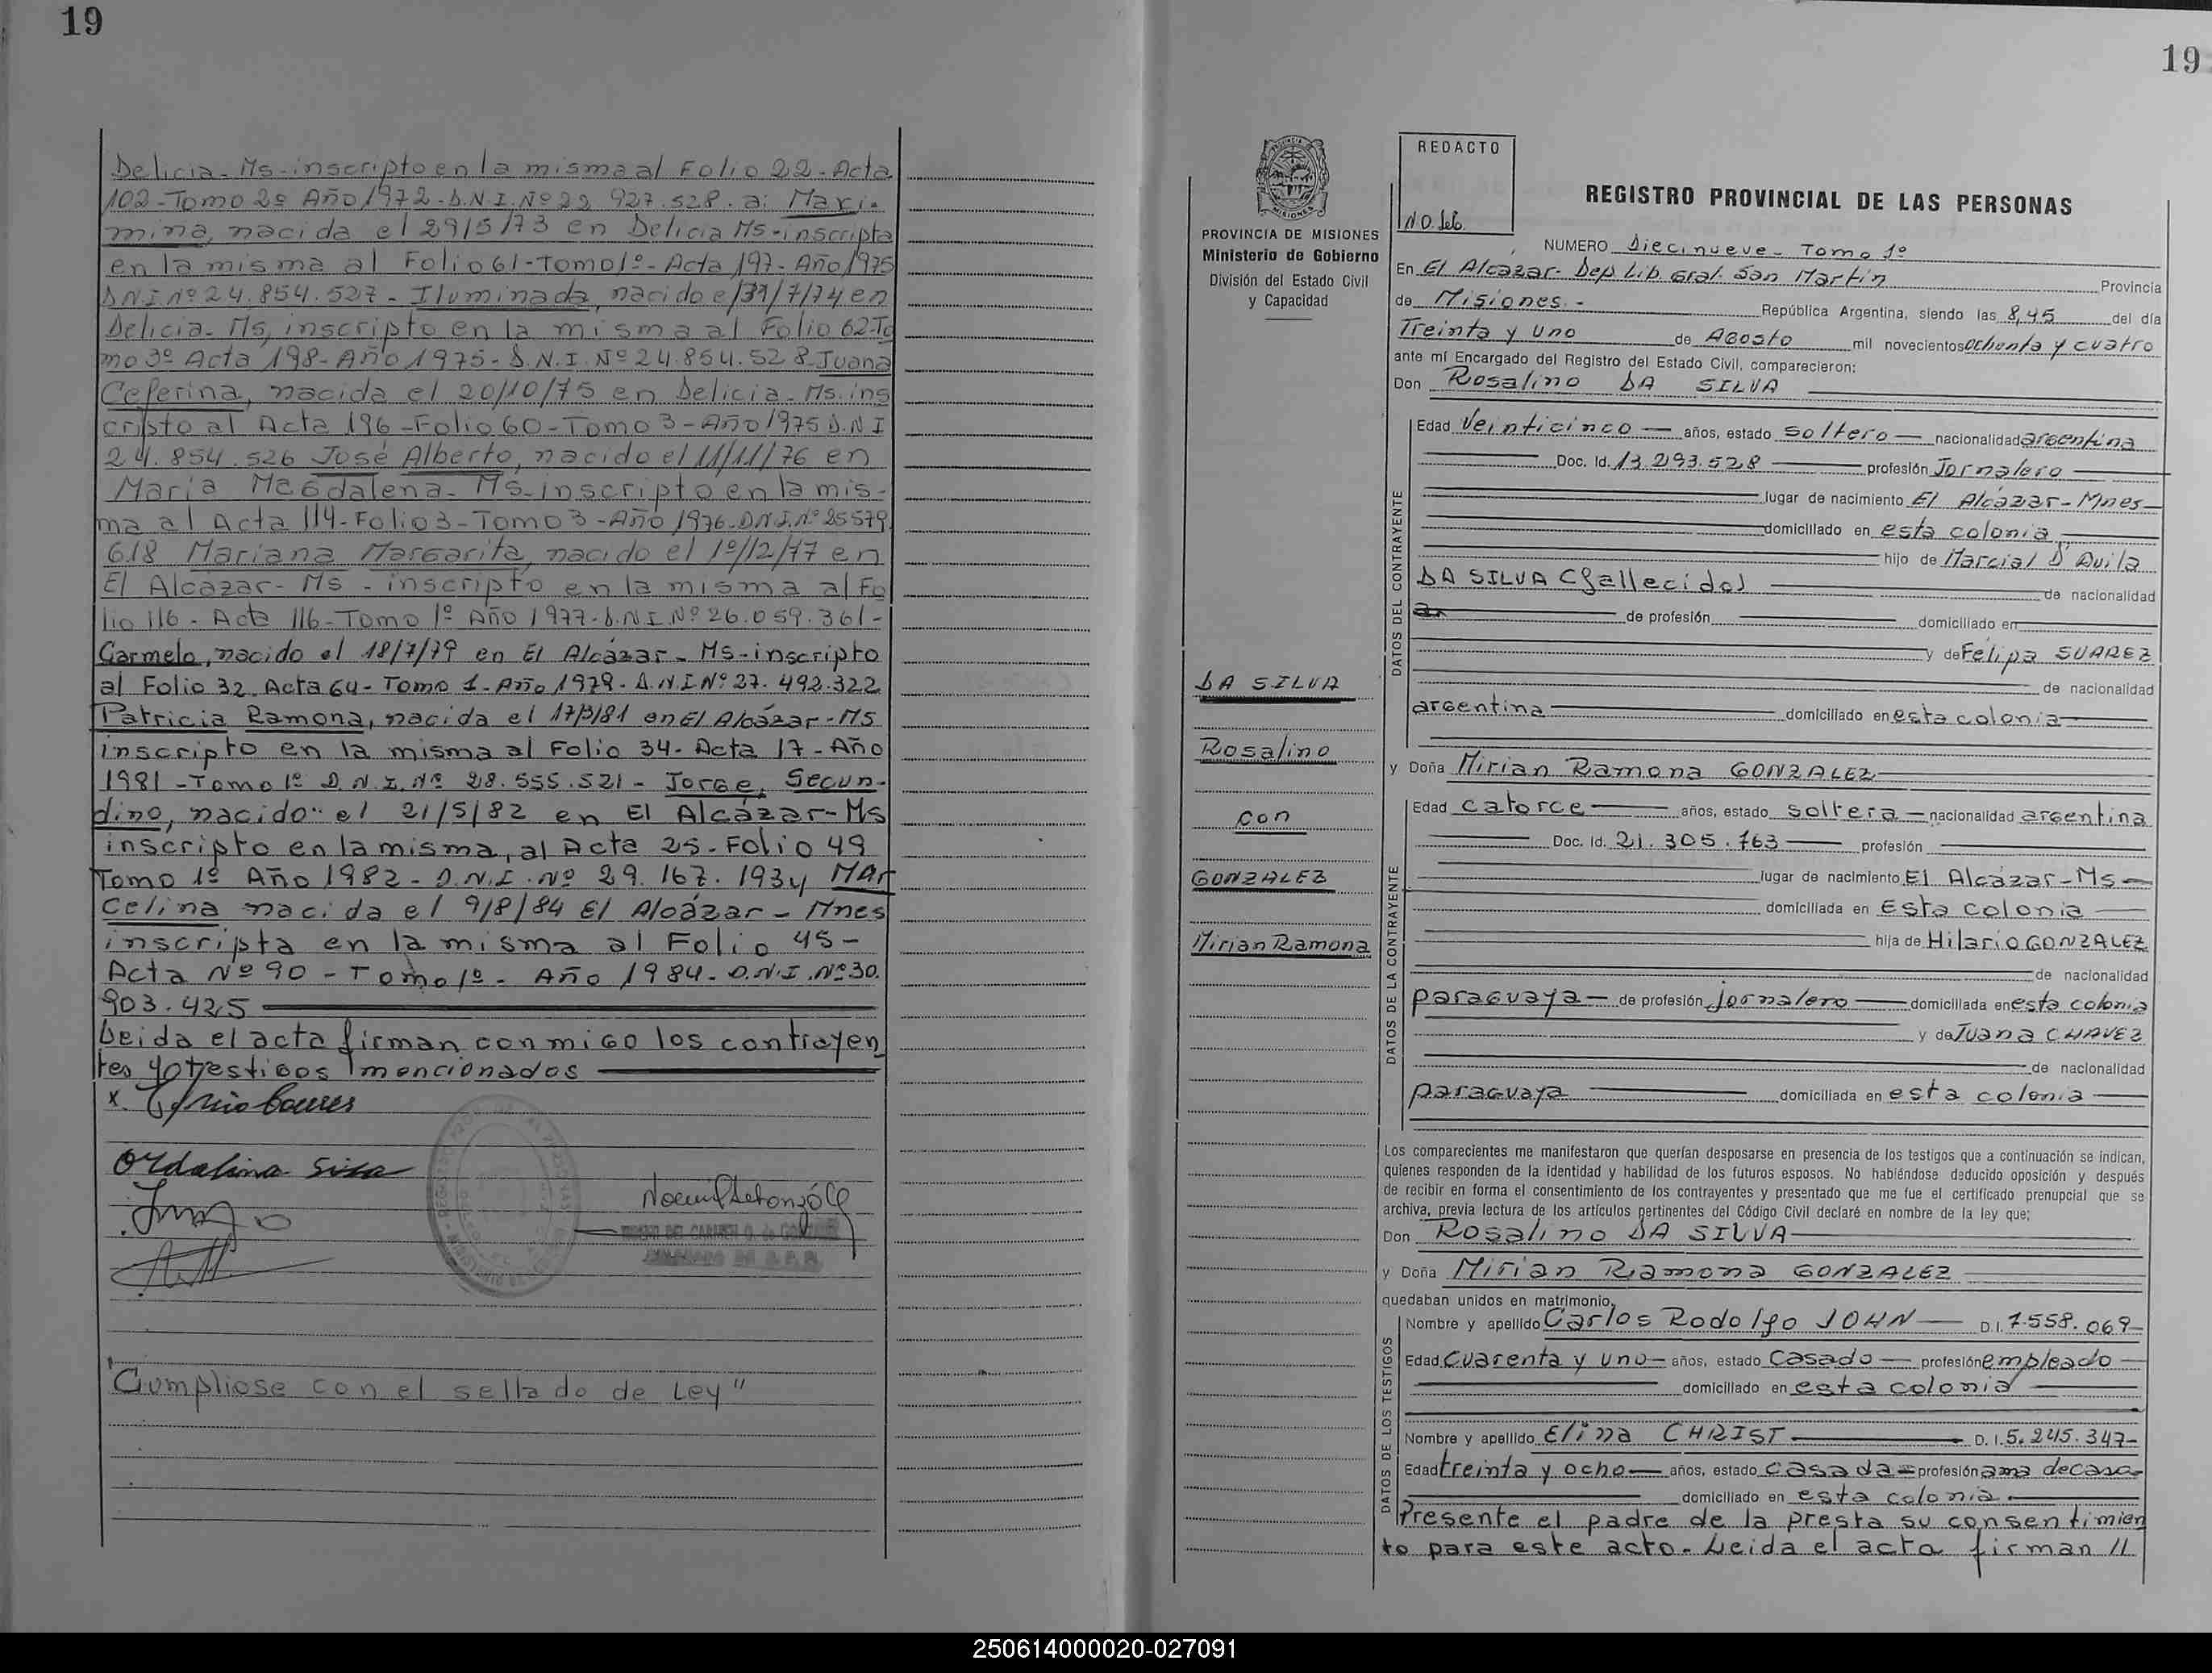 19
Delicia- Ms-inscripto en la misma al Folio 22- Acta
102-Tomo 2º Año 1972-D.N.I.Nº 22 927.528. a: Maxi-
mina, nacida el 29/5/73 en Delicia Ms-inscripta
en la misma al Folio 61-Tomo 1º- Acta 197- Año 1975
DNI.Nº 24.854.527- Iluminada, nacido el 31/7/74 en
Delicia- Ms, inscripto en la misma al Folio 62-To
mo 3º Acta 198- Año 1975- D.N.I. Nº 24.854.528-Juana
Ceferina, nacida el 20/10/75 en Delicia- Ms. ins
cripto al Acta 196-Folio 60-Tomo 3-Año 1975 D.N.I
24.854.526 José Alberto, nacido el 11/11/76 en
María Magdalena- Ms-inscripto en la mis-
ma al Acta 114-Folio 3-Tomo 3-Año 1976-DNI.Nº 25579
618 Mariana Margarita, nacido el 1º/12/77 en
El Alcázar- Ms - inscripto en la misma al Fo
lio 116- Acta 116-Tomo 1º Año 1977-D.N.I.Nº 26.059.361-
Carmelo, nacido el 18/7/79 en El Alcázar- Ms-inscripto
al Folio 32-Acta 64-Tomo 1-Año 1979-D.N.I Nº 27.492.322
Patricia Ramona, nacida el 17/3/81 en El Alcázar-MS
inscripto en la misma al Folio 34- Acta 17-Año
1981-Tomo 1º D.N.I.Nº 28.555.521- Jorge, Secun-
dino, nacido el 21/5/82 en El Alcázar-Ms
inscripto en la misma, al Acta 25-Folio 49
Tomo 1º Año 1982- D.N.I. Nº 29.167.193 y MAr
celina nacida el 9/8/84 El Alcázar- Mnes
inscripta en la misma al Folio 45-
Acta Nº 90-Tomo 1º- Año 1984-D.N.I.Nº 30.
903.425
Leida el acta firman conmigo los contrayen
tes y testigos mencionados
x.
Ordalina Silva
"Cumpliose con el sellado de Ley"
19
PROVINCIA DE MISIONES
Ministerio de Gobierno
División del Estado Civil
y Capacidad
DA SILVA
Rosalino
con
GONZALEZ
Mirian Ramona
REDACTO
REGISTRO PROVINCIAL DE LAS PERSONAS
NUMERO Diecinueve- Tomo 1º
En El Alcázar- Dep. Lib. Gral. San Martín Provincia
de Misiones.- República Argentina, siendo las 8,45 del día
Treinta y uno de Agosto mil novecientos ochenta y cuatro
ante mí Encargado del Registro del Estado Civil, comparecieron:
Don Rosalino DA SILVA
DATOS DEL CONTRAYENTE
Edad Veinticinco años, estado soltero nacionalidad argentina
Doc. Id. 13.293.528 profesión Jornalero
lugar de nacimiento El Alcázar-Mnes
domiciliado en esta colonia
hijo de Marcial D'Avila
DA SILVA (fallecido) de nacionalidad
de profesión domiciliado en
y de Felipa SUAREZ
de nacionalidad
argentina domiciliado en esta colonia
y Doña Mirian Ramona GONZALEZ
DATOS DE LA CONTRAYENTE
Edad catorce años, estado soltera nacionalidad argentina
Doc. Id. 21.305.763 profesión
lugar de nacimiento El Alcázar-Ms
domiciliada en Esta colonia
hija de Hilario GONZALEZ
de nacionalidad
paraguaya de profesión jornalero domiciliada en esta colonia
y de Juana CHAVEZ
de nacionalidad
paraguaya domiciliada en esta colonia
Los comparecientes me manifestaron que querían desposarse en presencia de los testigos que a continuación se indican,
quienes responden de la identidad y habilidad de los futuros esposos. No habiéndose deducido oposición y después
de recibir en forma el consentimiento de los contrayentes y presentado que me fue el certificado prenupcial que se
archiva, previa lectura de los artículos pertinentes del Código Civil declaré en nombre de la ley que;
Don Rosalino DA SILVA
y Doña Mirian Ramona GONZALEZ
quedaban unidos en matrimonio.
DATOS DE LOS TESTIGOS
Nombre y apellido Carlos Rodolfo JOHN D.I. 7.558.069
Edad Cuarenta y uno años, estado casado profesión empleado
domiciliado en esta colonia
Nombre y apellido Elina CHRIST D.I. 5.245.347
Edad treinta y ocho años, estado casada profesión ama de casa
domiciliado en esta colonia
Presente el padre de la presta su consentimien
to para este acto. Leida el acta firman //
250614000020-027091